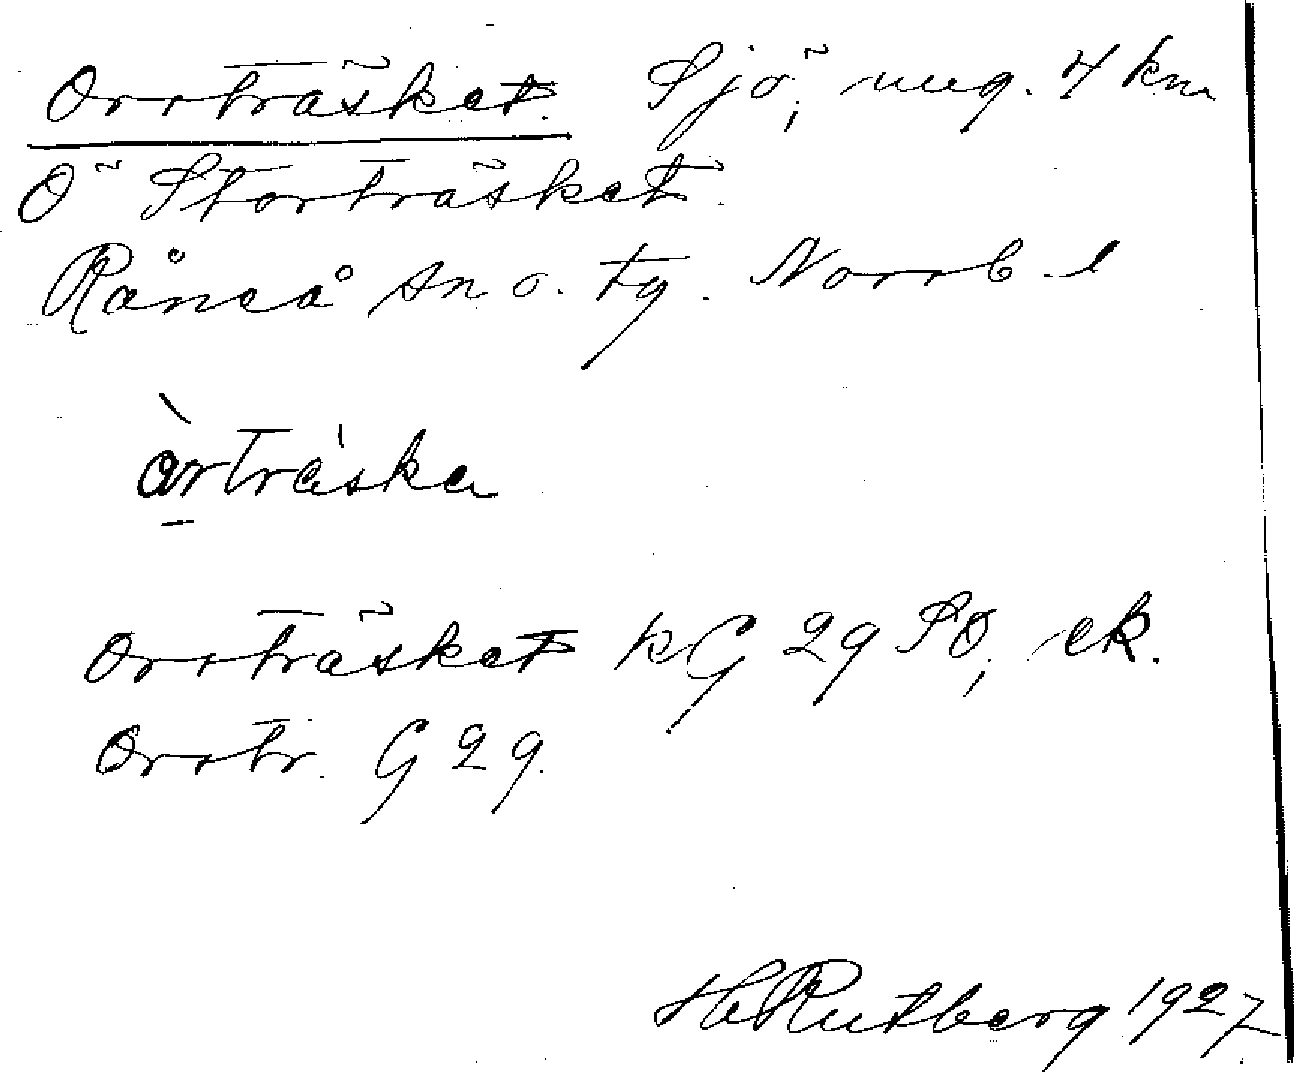 Orrträsket. Sjö, ung. 4 km
Ö Storträsket.
Råneå sn o. tg. Norrb. l
àrträska
Orrträsket kG 29 SO, ek.
Orrtr. G 29.
H Rutberg 1927